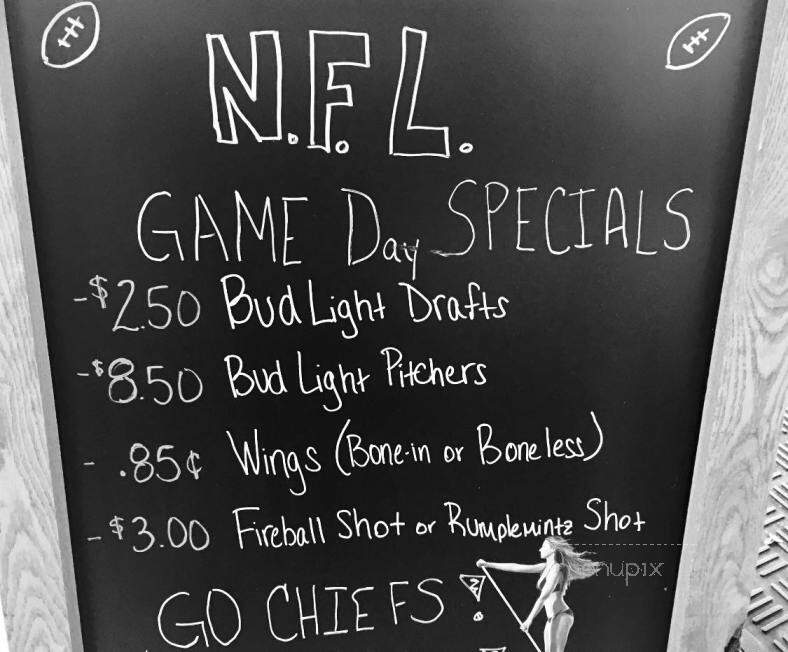 N.F.L.
GAME Day SPECIALS
-$2.50 Bud Light Drafts
-$8.50 Bud Light Pitchers
- .85¢ Wings (Bone-in or Boneless)
-$3.00 Fireball Shot or Rumplemintz Shot
GO CHIEFS!